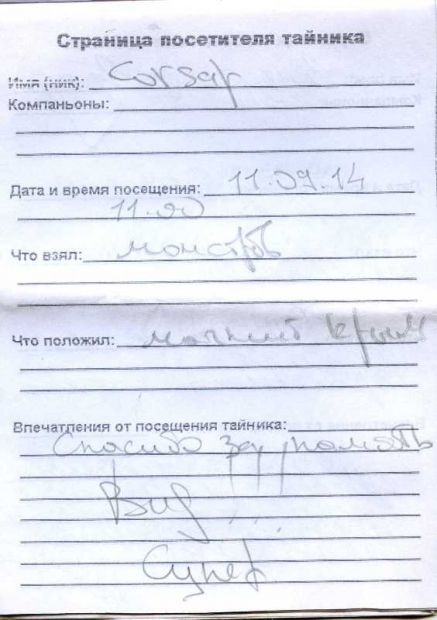 Страница посетителя тайника
Имя (ник): Corsar
Компаньоны:
Дата и время посещения: 11.09.14
11.00
Что взял: монстров
Что положил: магнит Крым
Впечатления от посещения тайника:
Спасибо за память
Вид !!!
Супер